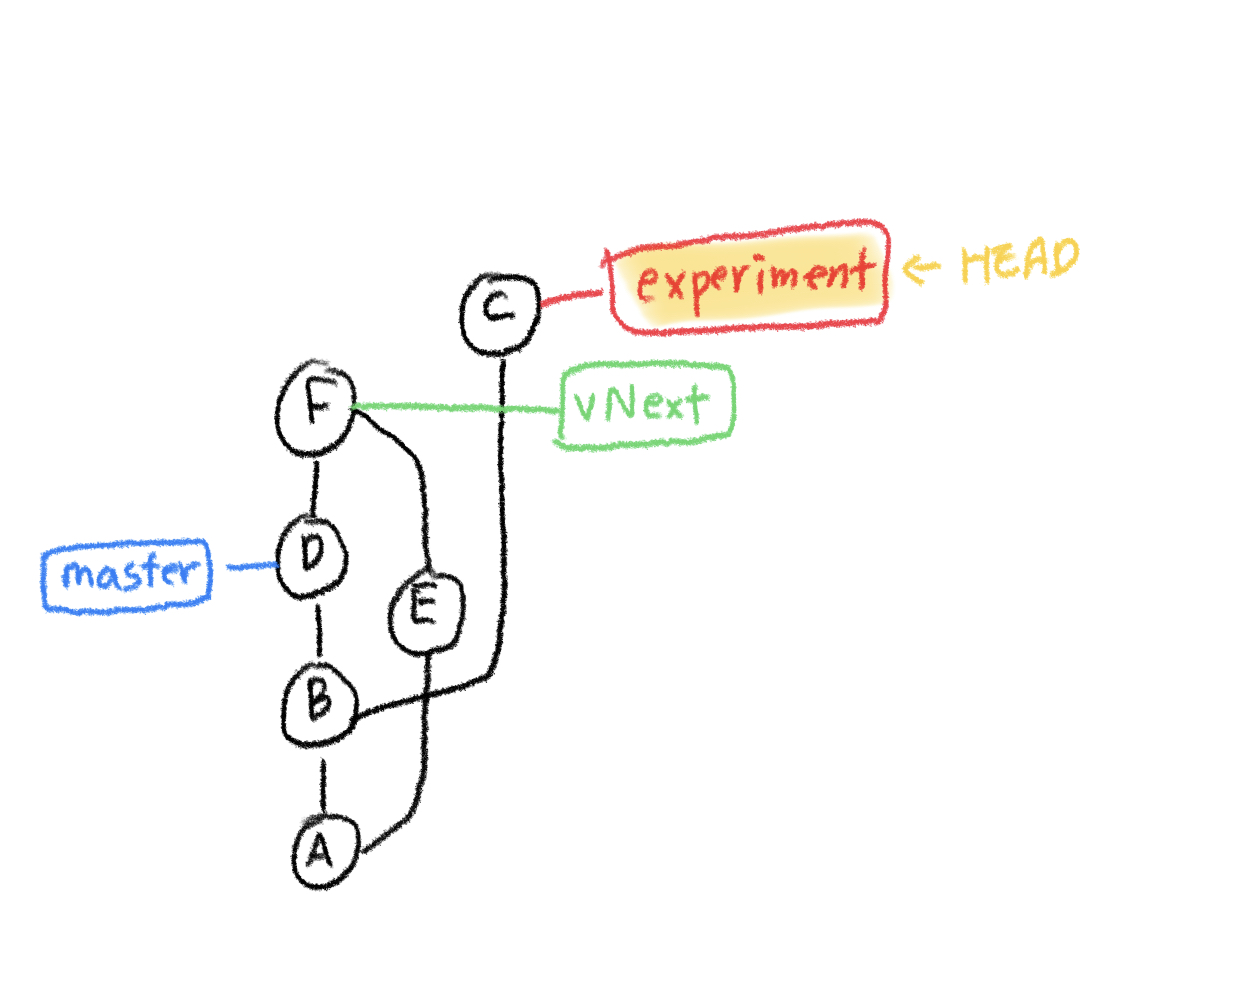 experiment
HEAD
C
F
vNext
D
master
E
B
A